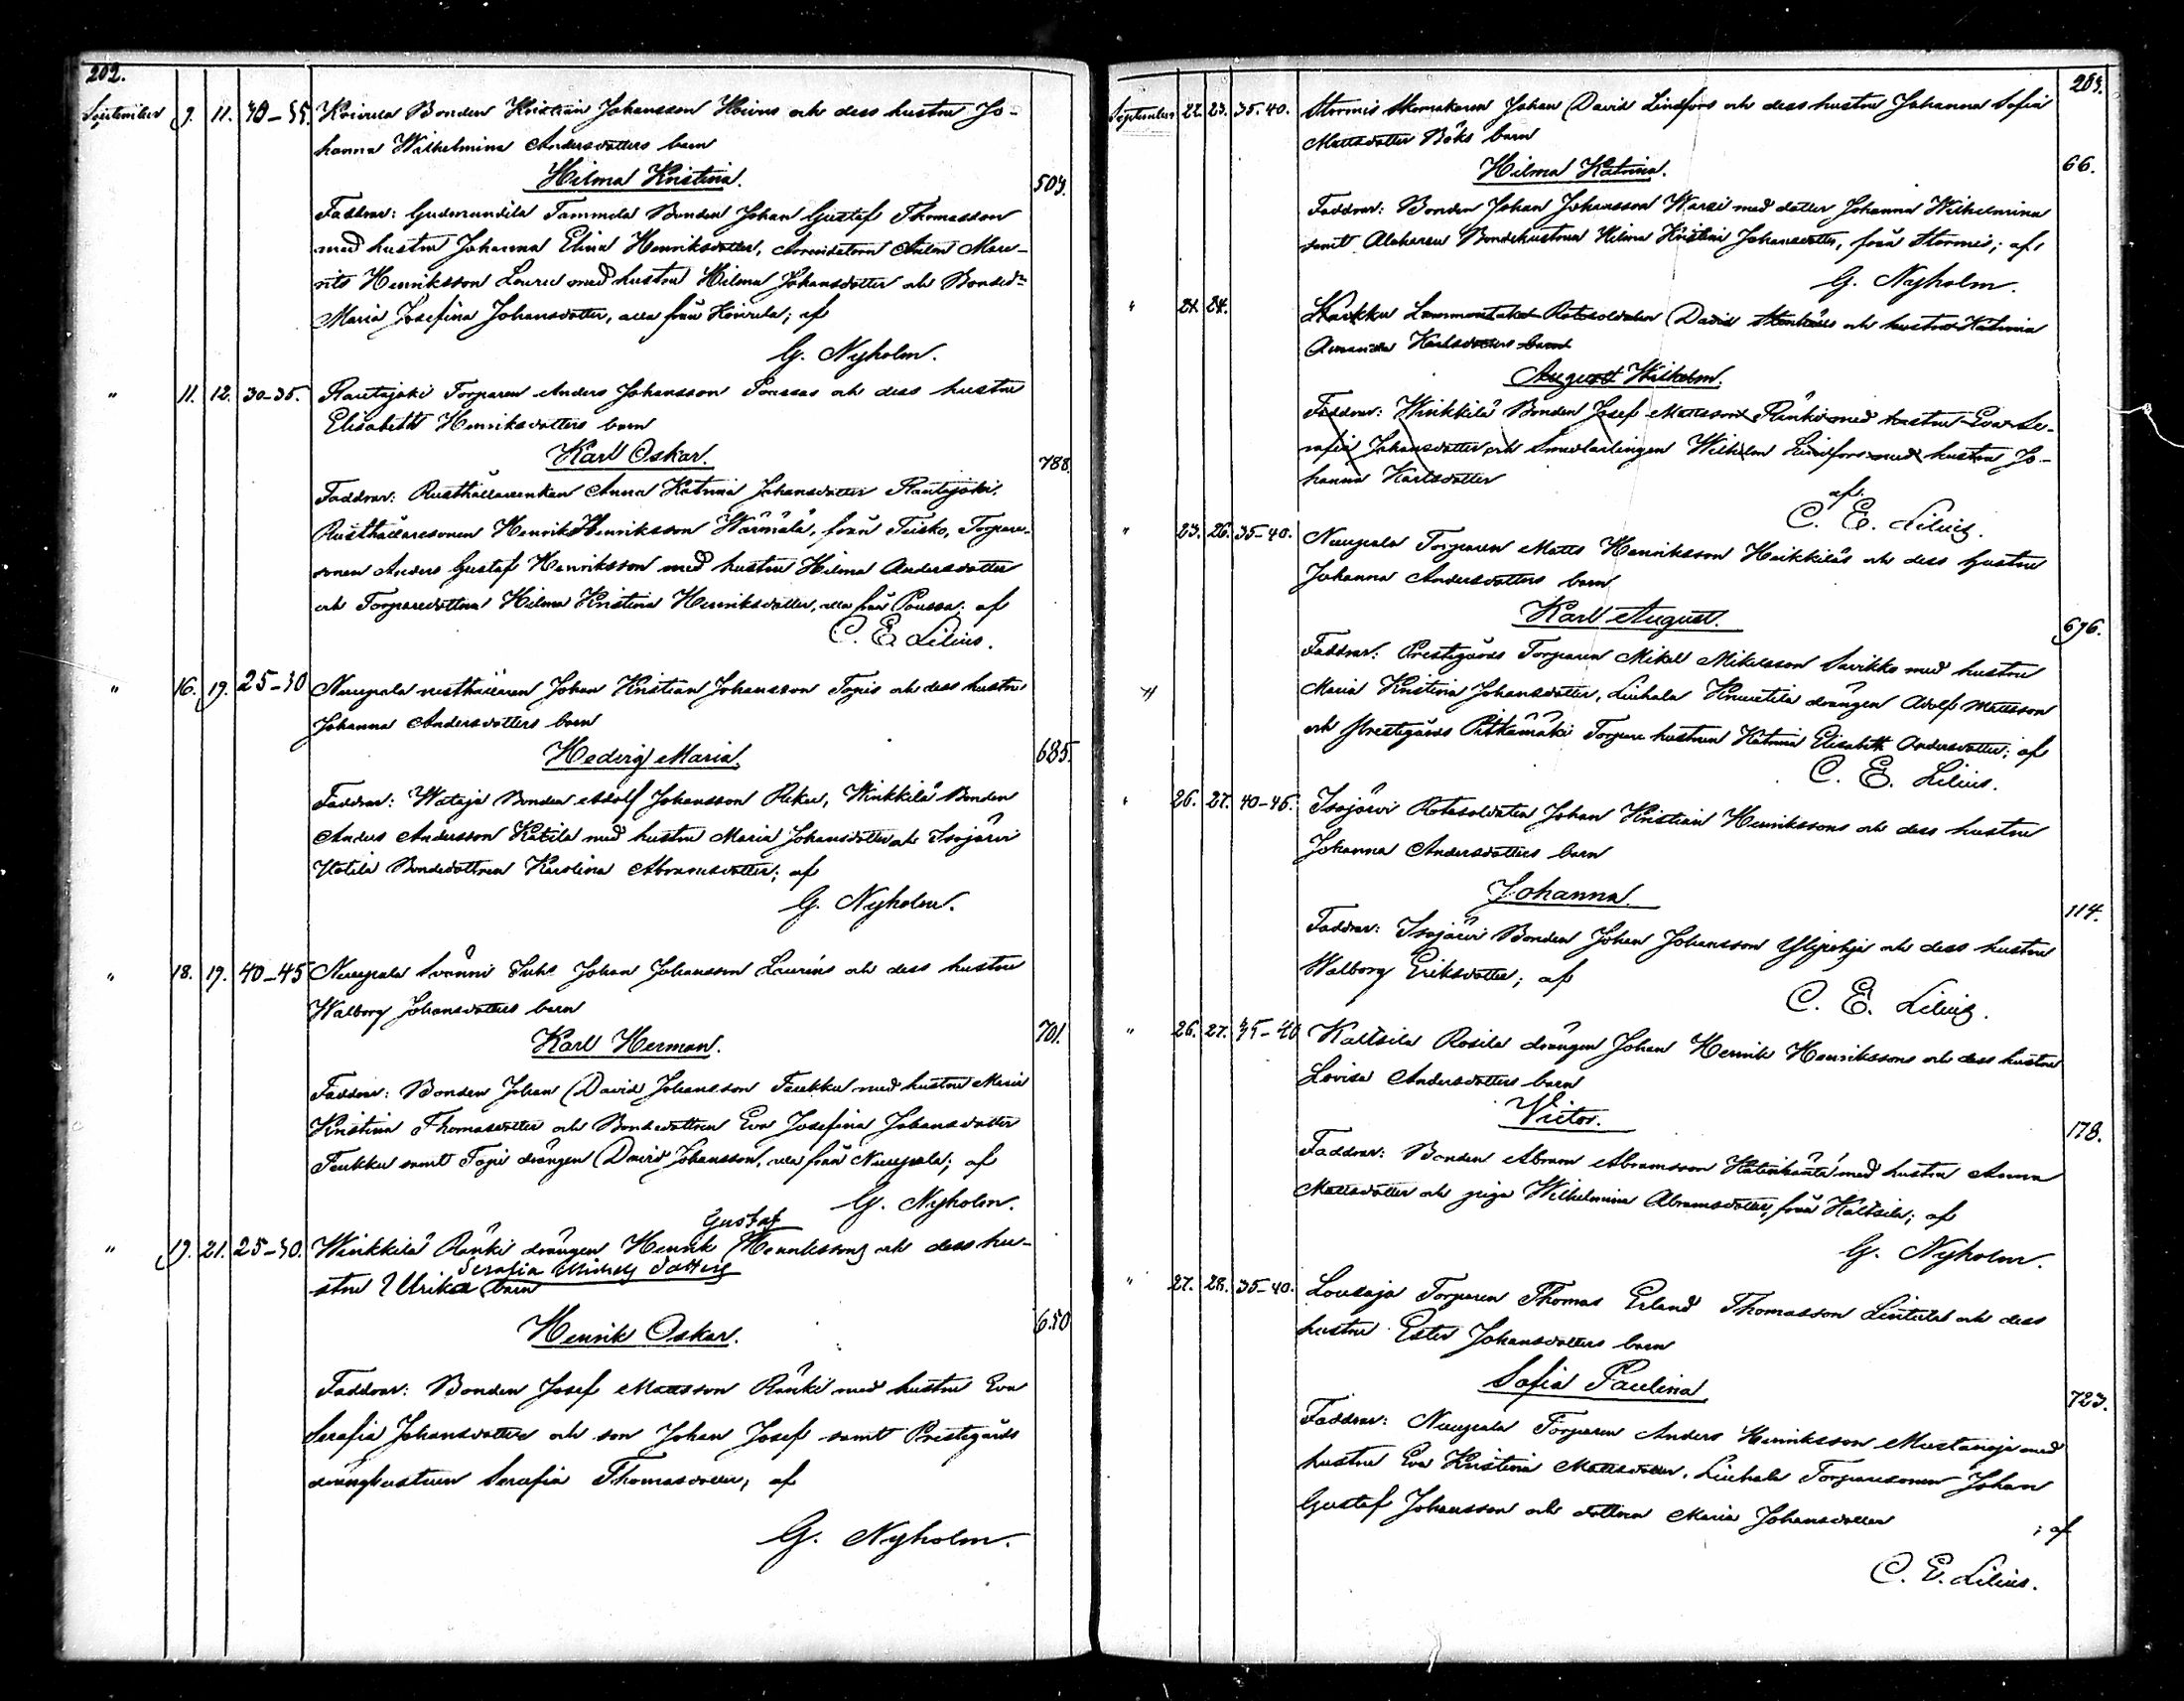 202.
September 9. 11. 30-35. Koivula Bonden Kristian Johansson Koivus och dess hustru Jo-
hanna Wilhelmina Andersdotters barn
Hilma Kristina.
503.
Faddrar: Gudmundila Tammela Bonden Johan Gustaf Thomasson
med hustru Johanna Elina Henriksdotter, Arrendatorn Anton Mau-
rits Henriksson Lauru med hustru Hilma Johansdotter och Bonded:
Maria Josefina Johansdotter, alla från Koivula; af
G. Nyholm.
" 11. 12. 30-35. Rautajoki Torparen Anders Johansson Poussas och dess hustru
Elisabeth Henriksdotters barn
Karl Oskar.
788.
Faddrar: Rusthållareenkan Anna Katrina Johansdotter Rautajoki,
Rusthållaresonen Henrik Henriksson Wärmälä, från Teisko, Torpare-
sonen Anders Gustaf Henriksson med hustru Hilma Andersdotter
och Torparedottren Hilma Kristina Henriksdotter, alla från Poussa; af
C. E. Lilius.
" 16. 19. 25-30 Nuupala rusthållaren Johan Kristian Johansson Topis och dess hustru
Johanna Andersdotters barn
Hedvig Maria.
685.
Faddrar: Wataja Bonden Adolf Johansson Reku, Winkkilä Bonden
Anders Andersson Katila med hustru Maria Johansdotter och Isojärvi
Utotila Bondedottren Karolina Abramsdotter; af
G. Nyholm.
" 18. 19. 40-45 Nuupala Svånni Inhs Johan Johansson Laurins och dess hustru
Walborg Johansdotters barn
Karl Herman.
701.
Faddrar: Bonden Johan David Johansson Feukku med hustru Maria
Kristina Thomasdotter och Bondedottren Eva Josefina Johansdotter
Feukku samt Topi drängen David Johansson, alla från Nuupala; af
G. Nyholm.
Gustaf
" 19. 21. 25-30. Winkkilä Ränki drängen Henrik Henrikssons och dess hu-
Serafia Michelsdotters
stru Ulrika barn
Henrik Oskar.
650
Faddrar: Bonden Josef Mattsson Ränki med hustru Eva
Serafia Johansdotter och son Johan Josef samt Prestegårds
dränghustrun Serafia Thomasdotter, af
G. Nyholm.
203.
September 22. 23. 35-40. Stormis Skomakaren Johan David Lindfors och dess hustru Johanna Sofia
Mattsdotter Böks barn
Hilma Katrina.
66.
Faddrar: Bonden Johan Johansson Warsi med dotter Johanna Wilhelmina
samt Alaharsu Bondehustrun Hilma Kristina Johansdotter, från Stormis; af
G. Nyholm.
" 21 24. Karkku Lammentaka Rotesoldaten David Stenhäll och hustru Katrina
Amanda Karlsdotters barn
August Wilhelm.
Faddrar: Winkkilä Bonden Josef Mattsson Ränki med hustru Eva Se-
rafia Johansdotter och Smedlärlingen Wilhelm Lindfors med hustru Jo-
hanna Karlsdotter
af
C. E. Lilius.
" 23. 26. 35-40. Nuupala Torparen Matts Henriksson Heikkiläs och dess hustru
Johanna Andersdotters barn
Karl August.
696.
Faddrar: Prestegårds Torparen Mikel Mikelsson Savikko med hustru
Maria Kristina Johansdotter, Liuhala Knuutila drängen Adolf Mattsson
och Prestegårds Pitkämäki Torpare hustrun Katrina Elisabeth Andersdotter; af
C. E. Lilius.
" 26. 27. 40-45. Isojärvi Rotesoldaten Johan Kristian Henrikssons och dess hustru
Johanna Andersdotters barn
Johanna.
114.
Faddrar: Isojärvi Bonden Johan Johansson Ylipohja och dess hustru
Walborg Eriksdotter; af
C. E. Lilius.
" 26. 27. 35-40 Kaltsila Rosila drängen Johan Henrik Henrikssons och dess hustru
Lovisa Andersdotters barn
Victor.
178.
Faddrar: Bonden Abram Abramsson Hatinkanta med hustru Anna
Mattsdotter och piga Wilhelmina Abramsdotter, från Kaltsila; af
G. Nyholm.
" 27. 28. 35-40. Lousaja Torparen Thomas Erland Thomasson Lintulas och dess
hustru Ester Johansdotters barn
Sofia Paulina
723.
Faddrar: Nuupala Torparen Anders Henriksson Mustanoja med
hustru Eva Kristina Mattsdotter, Liuhala Torparesonen Johan
Gustaf Johansson och dottren Maria Johansdotter ; af
C. E. Lilius.